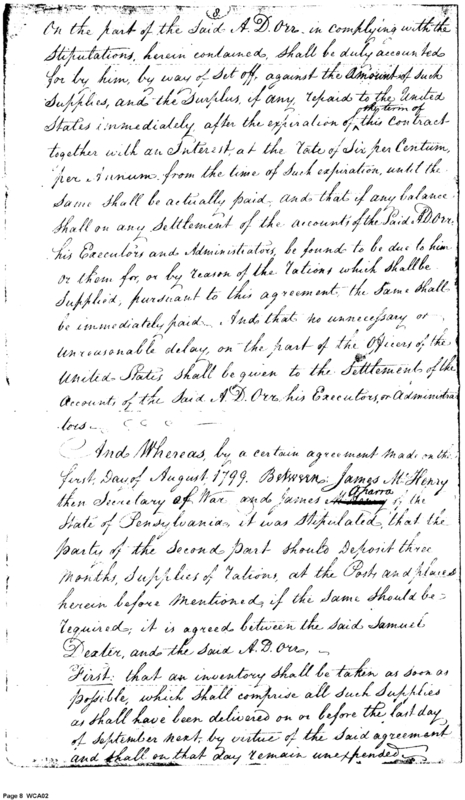 8
On the part of the Said A. D. Orr. in complying with the
Stiputations, herein contained, Shall be duly accounted
for by him, by way of Set off, against the Amount of Such
Supplies, and the Surplus, if any, repaid to the United
States immediately, after the expiration of the term of this Contract
together with an Interest, at the rate of Six, per Centum,
per Annum, from the time of Such expiration, until the
Same Shall be actually paid, and that if any balance
Shall on any Settlement of the accounts of the Said A D Orr,
his Executors and Administrators, be found to be due to him
or them for, or by reason of the rations which Shall be
Supplied, pursuant to this agreement, the Same Shall
be immediately paid. And that no unnecessary or
unreasonable delay, on the part of the Officers of the
United States Shall be given to the Settlement of the
Accounts of the Said A. D. Orr, his Executors, or Administra
tors.
And Whereas, by a certain agreement made on the
first, Day of August, 1799. Between James McHenry
then Secretary of War and James Oharra of the
State of Pensylvania, it was Stipulated, that the
party of the Second part Should Deposit three
Months, Supplies of rations, at the Posts and places
herein before Mentioned, if the Same Should be
required, it is agreed between the Said Samuel
Dexter, and the Said A. D. Orr,
First: that an inventory Shall be taken as soon as
possible, which Shall comprise all Such Supplies
as Shall have been delivered on or before the last day
of September next, by virtue of the Said agreement
and Shall on that day remain unexpended
Page 8 WCA02